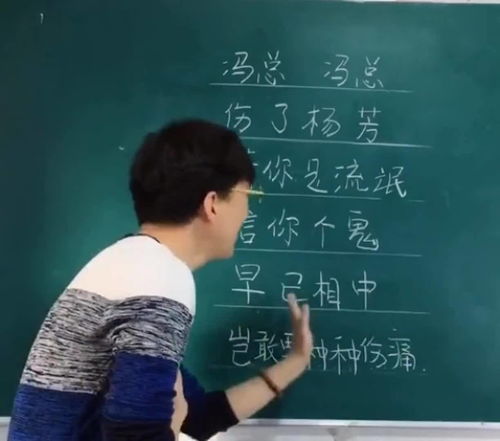 冯总 冯总
伤了杨芳
你是流氓
信你个鬼
早已相中
岂敢 种种伤痛.